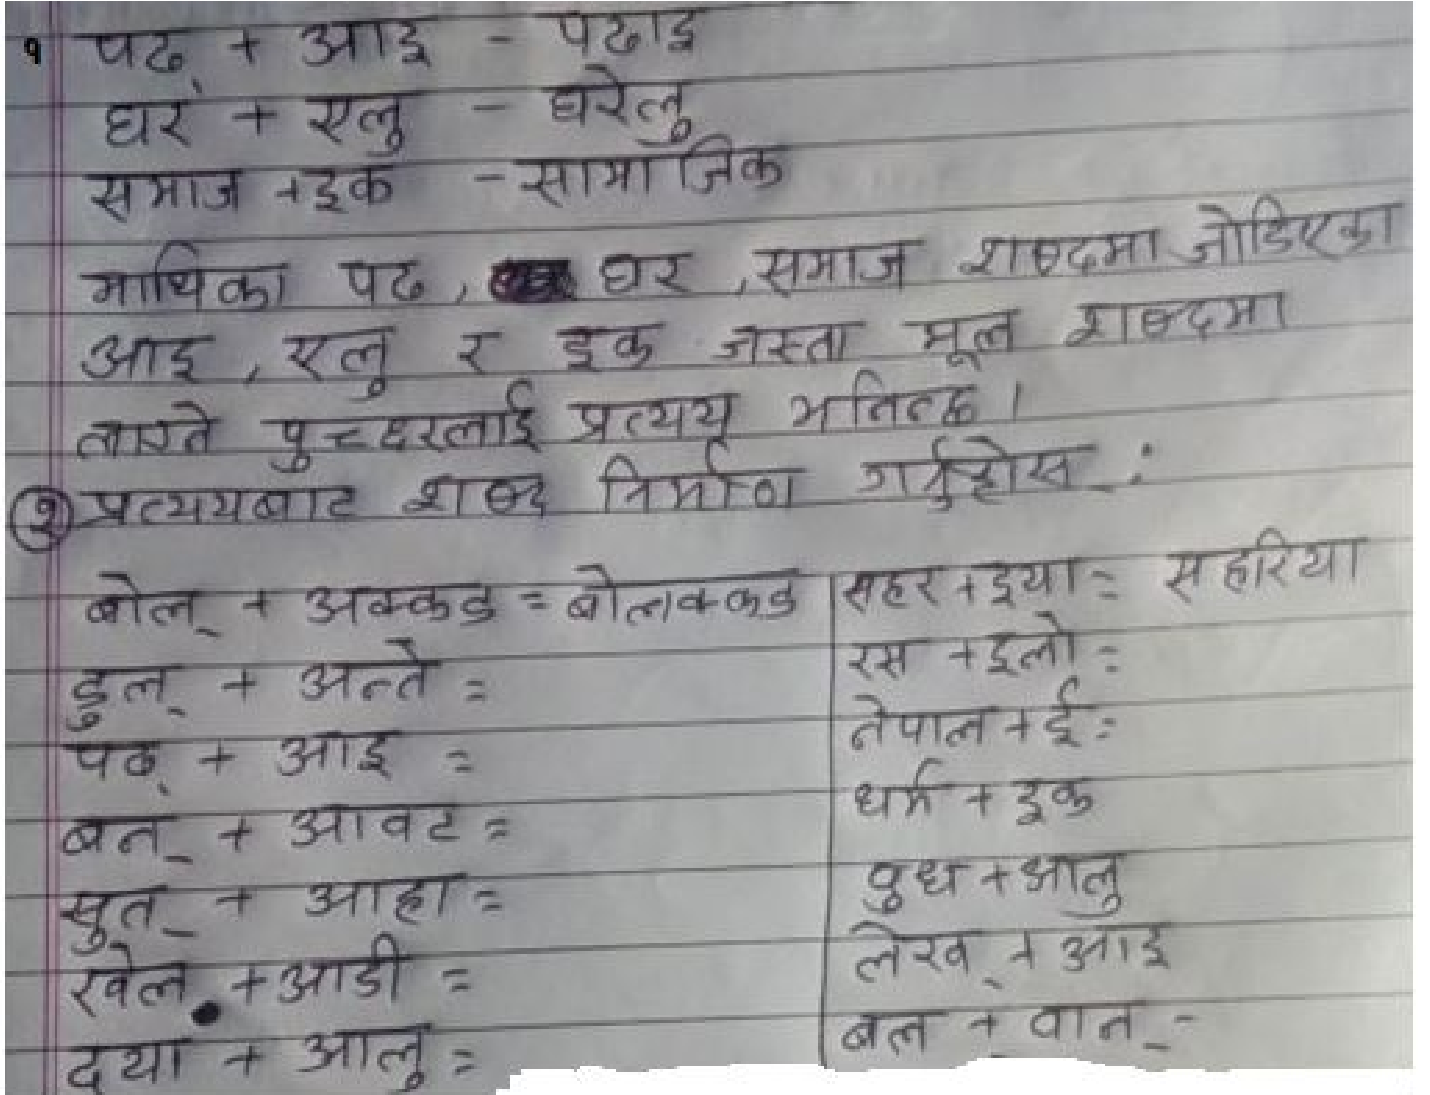 १ पढ् + आइ - पढाइ
घर + एलु - घरेलु
समाज + इक - सामाजिक
माथिका पढ, घर, समाज शब्दमा जोडिएका
आइ, एलु र इक जस्ता मूल शब्दमा
लाग्ने पुच्छरलाई प्रत्यय भनिन्छ।
२ प्रत्ययबाट शब्द निर्माण गर्नुहोस् :
बोल् + अक्कड = बोलक्कड
डुल् + अन्ते =
पढ् + आइ =
बन् + आवट =
सुत् + आहा =
खेल् + आडी =
दया + आलु =
सहर + इया = सहरिया
रस + इलो =
नेपाल + ई =
धर्म + इक
दुध + आलु
लेख् + आइ
बल + वान् -